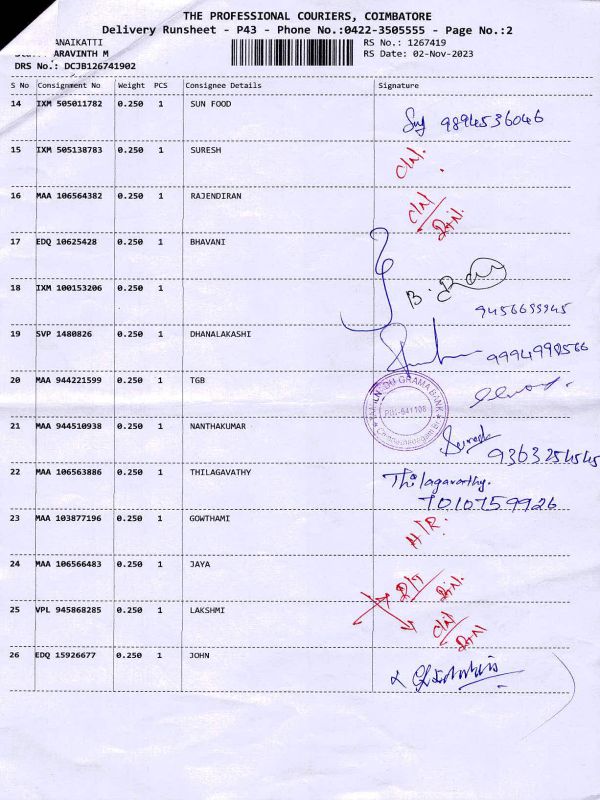 THE PROFESSIONAL COURIERS, COIMBATORE
Delivery Runsheet - P43 - Phone No.:0422-3505555 - Page No.:2
ANAIKATTI
RS No.: 1267419
ARAVINTH M
RS Date: 02-Nov-2023
DRS No.: DCJB126741902
S No Consignment No Weight PCS Consignee Details Signature
14 IXM 505011782 0.250 1 SUN FOOD
9894536046
15 IXM 505138783 0.250 1 SURESH
C/N.
16 MAA 106564382 0.250 1 RAJENDIRAN
C/N/
17 EDQ 10625428 0.250 1 BHAVANI
18 IXM 100153206 0.250 1
9456699945
19 SVP 1480826 0.250 1 DHANALAKASHI
9994998566
20 MAA 944221599 0.250 1 TGB
TAMILNADU GRAMA BANK
PIN-641108
21 MAA 944510938 0.250 1 NANTHAKUMAR
Suresh
9363254545
22 MAA 106563886 0.250 1 THILAGAVATHY
Thilagavathy.
7010759926
23 MAA 103877196 0.250 1 GOWTHAMI
24 MAA 106566483 0.250 1 JAYA
25 VPL 945868285 0.250 1 LAKSHMI
C/N/
26 EDQ 15926677 0.250 1 JOHN